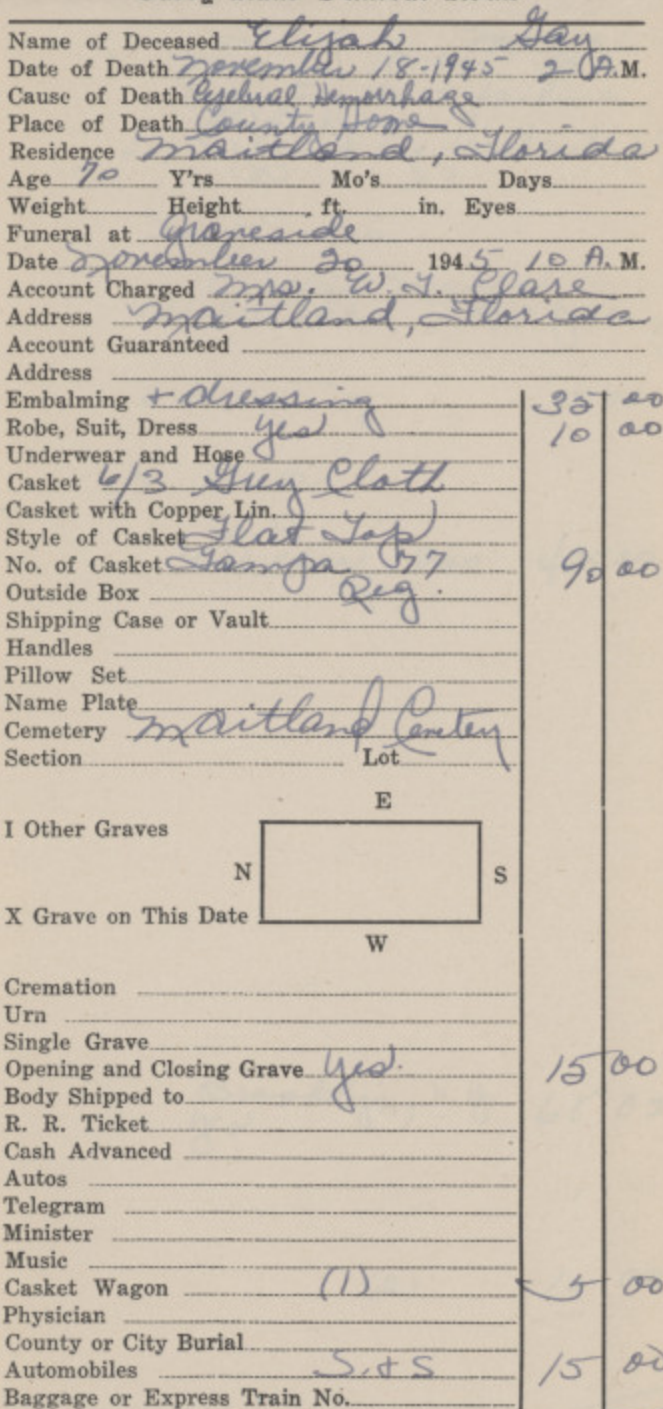 Name of Deceased Elijah Gay
Date of Death November 18-1945 2 A.M.
Cause of Death Cerebral Hemorrhage
Place of Death County Home
Residence Maitland, Florida
Age 70 Y'rs Mo's Days
Weight Height ft. in. Eyes
Funeral at Graveside
Date November 20 1945 10 A. M.
Account Charged Mrs. W. J. Clare
Address Maitland, Florida
Account Guaranteed
Address
Embalming + dressing 35 00
Robe, Suit, Dress yes 10 00
Underwear and Hose
Casket 6/3 Grey Cloth
Casket with Copper Lin.
Style of Casket Flat Top
No. of Casket Tampa 77 90 00
Outside Box Reg.
Shipping Case or Vault
Handles
Pillow Set
Name Plate
Cemetery Maitland
Section Lot
E
I Other Graves
N S
X Grave on This Date
W
Cremation
Urn
Single Grave
Opening and Closing Grave yes. 15 00
Body Shipped to
R. R. Ticket
Cash Advanced
Autos
Telegram
Minister
Music
Casket Wagon (1) 5 00
Physician
County or City Burial
Automobiles S. + S 15 00
Baggage or Express Train No.